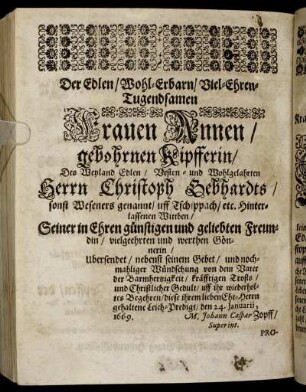 Der Edlen/ Wohl-Erbarn/ Viel-Ehren-
Tugendsamen
Frauen Annen/
gebohrnen Kipfferin/
Des Weyland Edlen/ Vesten- und Wohlgelahrten
Herrn Christoph Gebhardts/
sonst Weseners genannt/ uff Tschippach/ etc. Hinter-
lassenen Wittben/
Seiner in Ehren günstigen und geliebten Freun-
din/ vielgeehrten und werthen Gön-
nerin/
Ubersendet/ nebenst seinem Gebet/ und noch-
mahliger Wündschung von dem Vater
der Barmhertzigkeit/ kräfftigen Trosts/
und Christlicher Gedult/ uff ihr wiederhol-
tes Begehren/ diese ihrem lieben Ehe-Herrn
gehaltene Leich-Predigt/ den 24. Januarii,
1669. M. Johann Caspar Zopff/
Superint.
PRO-